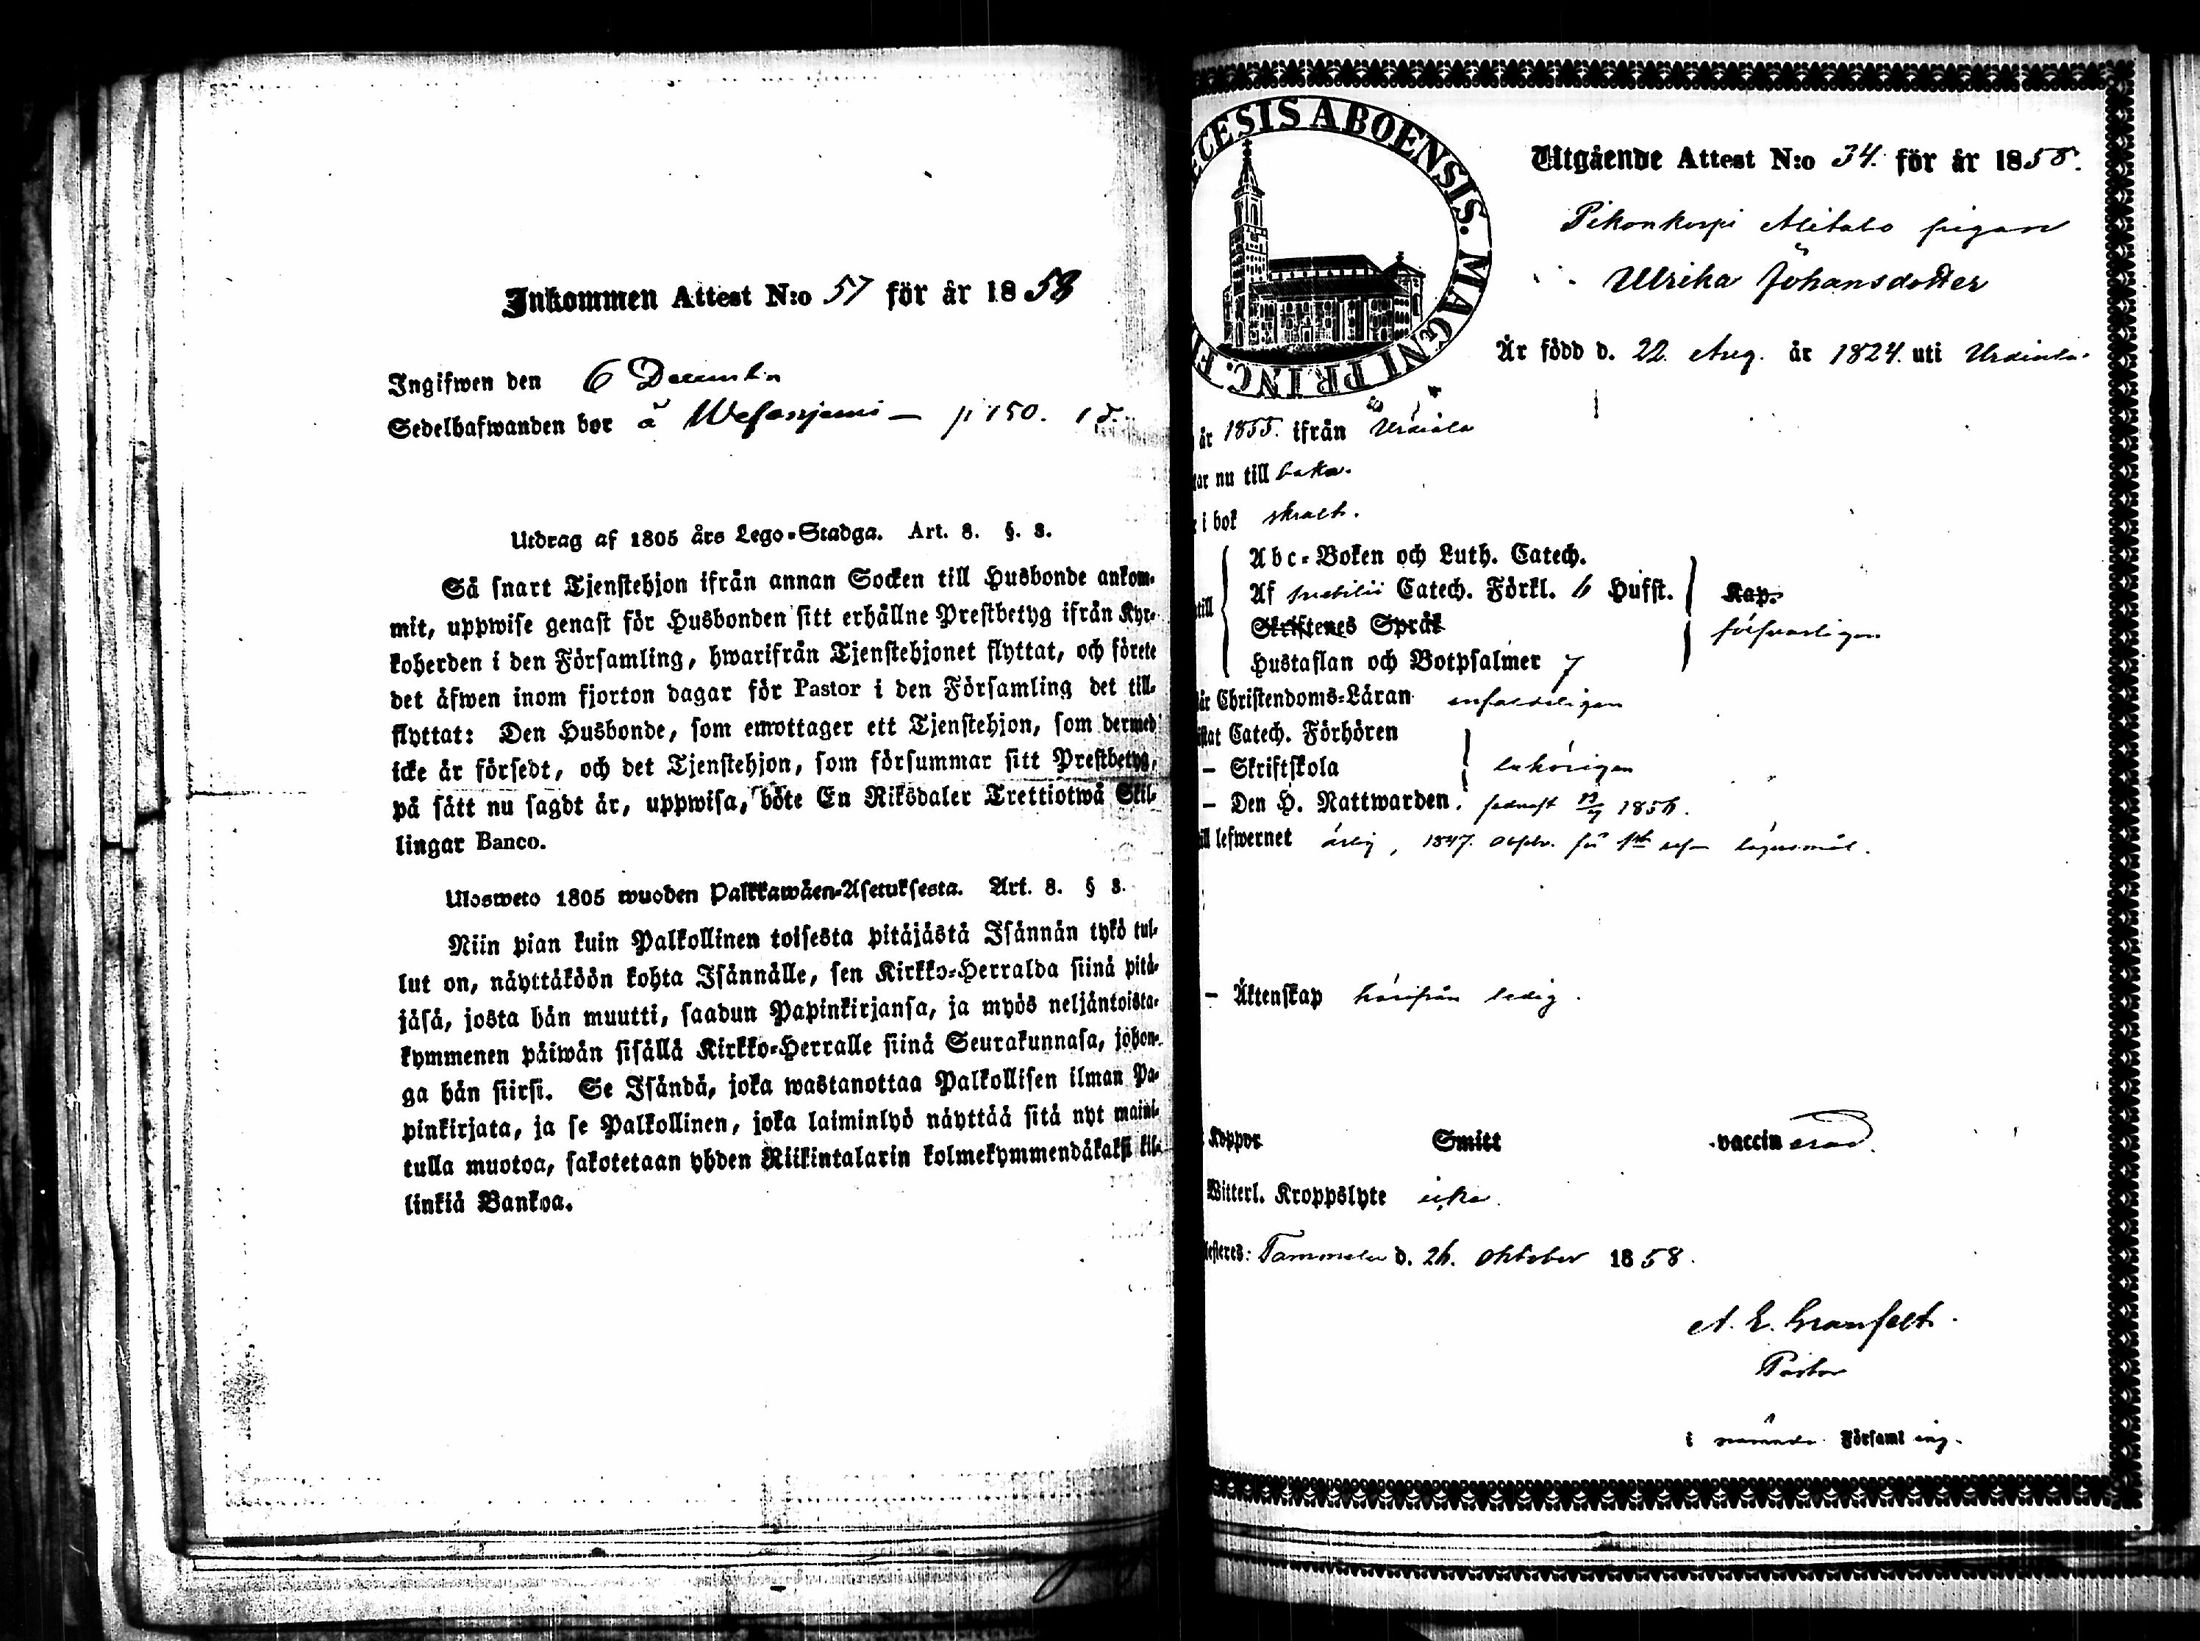 Inkommen Attest N:o 57 för år 1858
Ingifwen den 6 December
Sedelhafwanden bor å Wesanjemi — p 150.
Utdrag af 1805 års Lego-Stadga. Art. 8. §. 8.
Så snart Tjenstehjon ifrån annan Socken till Husbonde ankom-
mit, uppwise genast för Husbonden sitt erhållne Prestbetyg ifrån Kyr-
koherden i den Församling, hwarifrån Tjenstehjonet flyttat, och förete
det äfwen inom fjorton dagar för Pastor i den Församling det till-
flyttat: Den Husbonde, som emottager ett Tjenstehjon, som dermed
icke är försedt, och det Tjenstehjon, som försummar sitt Prestbetyg,
på sätt nu sagdt är, uppwisa, böte En Riksdaler Trettiotwå Skil-
lingar Banco.
Ulosweto 1805 wuoden Palkkawäen-Asetuksesta. Art. 8. § 8.
Niin pian kuin Palkollinen toisesta pitäjästä Isännän tykö tul-
lut on, näyttäköön kohta Isännälle, sen Kirkko-Herralda siinä pitä-
jäsä, josta hän muutti, saadun Papinkirjansa, ja myös neljäntoista-
kymmenen päiwän sisällä Kirkko-Herralle siinä Seurakunnasa, johon-
ga hän siirsi. Se Isändä, joka wastanottaa Palkollisen ilman Pa-
pinkirjata, ja se Palkollinen, joka laiminlyö näyttää sitä nyt maini-
tulla muotoa, sakotetaan yhden Riikintalarin kolmekymmendäkaksi kil-
linkiä Bankoa.
CESIS ABOENSIS. MAGNI PRINC. F
Utgående Attest N:o 34. för år 1858.
Pikonkorpi Alitalo pigan
Ulrika Johansdotter
Är född d. 22. Aug. år 1824. uti Urdiala.
år 1855. ifrån Urdiala
nu till baka.
i bok
Abc-Boken och Luth. Catech.
Af Svebilii Catech. Förkl. 6 Hufst. Kap.
Skriftenes Språk försvarligen
Hustaflan och Botpsalmer 7
Christendoms-Läran enfaldeligen
Catech. Förhören
— Skriftskola behörigen
— Den H. Nattwarden, sednast 1856.
lefwernet ärlig, 1847. lägersmål.
— Äktenskap härifrån ledig.
Koppor Smitt vaccinerad.
Witterl. Kroppslyte icke.
Tammela d. 26. Oktober 1858.
A. E. Granfelt.
Pastor
i nämnde Församling.